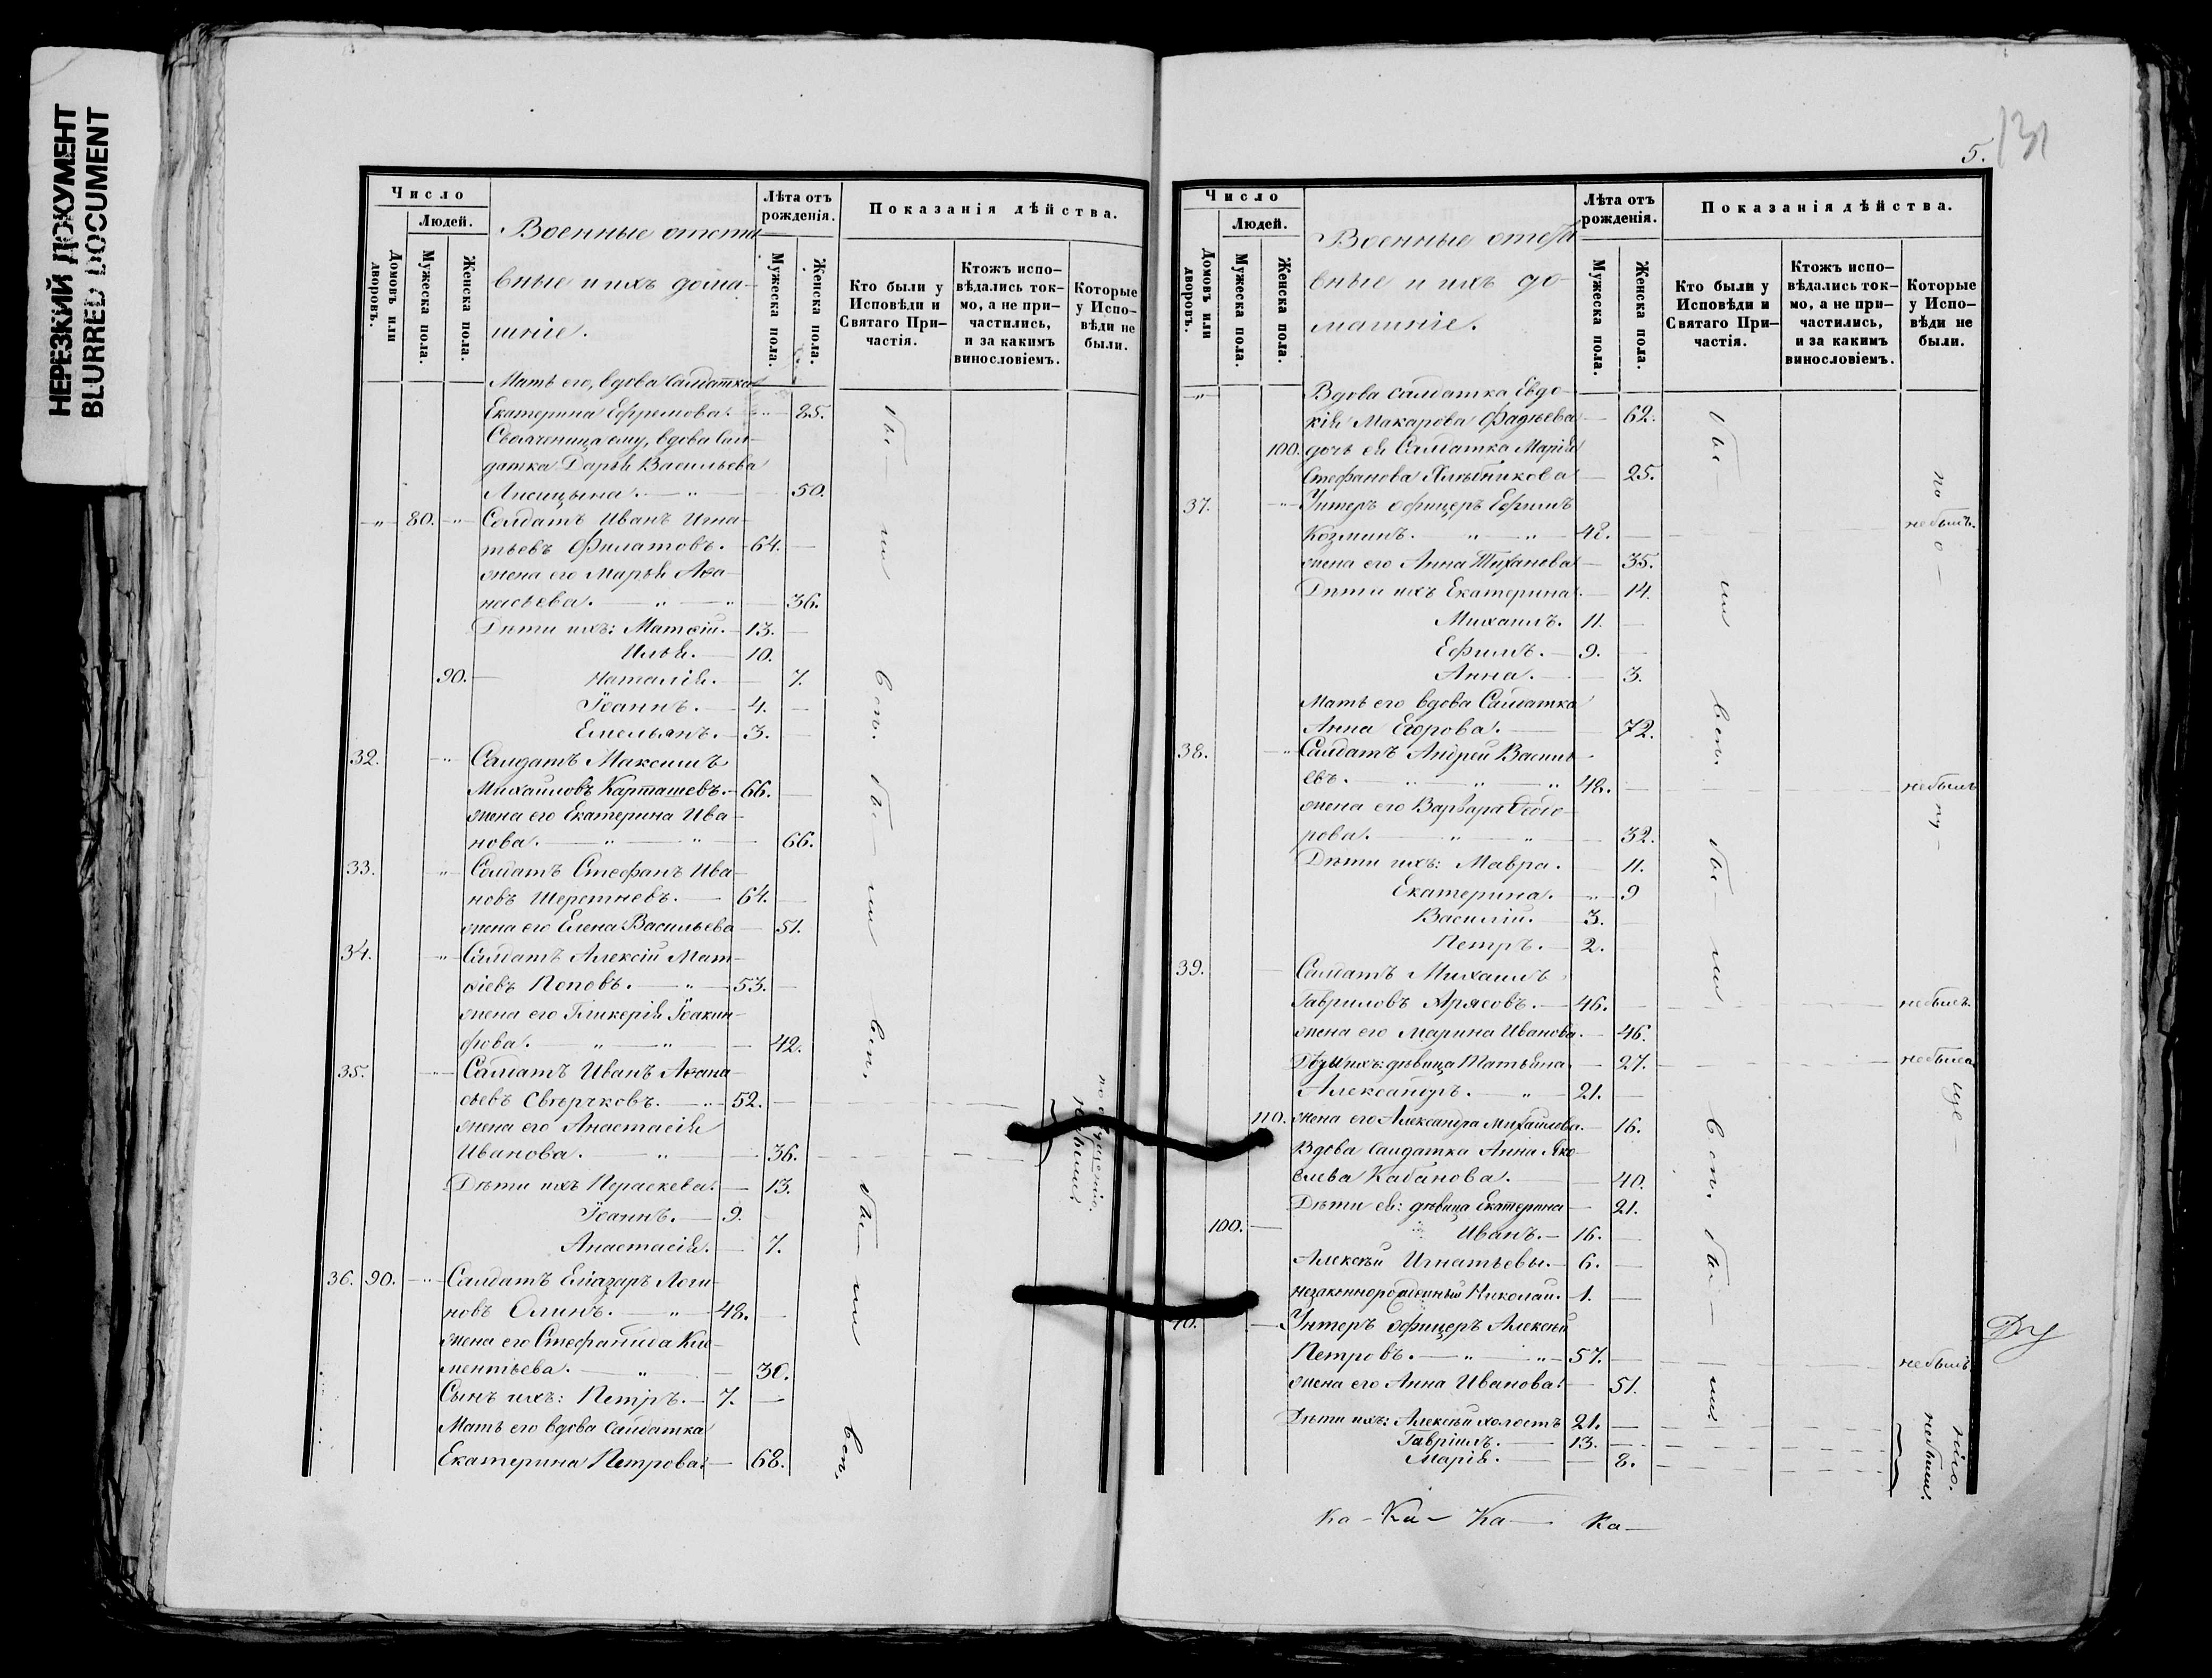 НЕРЕЗКИЙ ДОКУМЕНТ
BLURRED DOCUMENT
Число
Людей.
Домовъ или дворовъ.
Мужеска пола.
Женска пола.
Военные отста-
вные и ихъ дома-
шніе.
Лѣта отъ рожденія.
Мужеска пола.
Женска пола.
Показанія дѣйства.
Кто были у Исповѣди и Святаго При-частія.
Ктожъ испо-вѣдались ток-мо, а не при-частились, и за какимъ винословіемъ.
Которые у Испо-вѣди не были.
Мать его, вдова Салдатка
Екатерина Ефремова. 85.
вдова Сал-
датка Дарья Васильева
Лисицына. 50.
80. Солдатъ Иванъ Игна-
тьевъ Филатовъ. 64.
жена его Марья Аѳа-
насьева. 36.
Дѣти ихъ: Матѳій. 13.
Илья. 10.
90. Наталія. 7.
Іоаннъ. 4.
Емельянъ. 3.
32. Салдатъ Максимъ
Михайловъ Карташевъ. 66.
жена его Екатерина Ива-
нова. 66.
33. Солдатъ Стефанъ Ива-
новъ Шерстневъ. 64.
жена его Елена Васильева 51.
34. Салдатъ Алексій Мат-
ѳіевъ Поповъ. 53.
жена его Гликерія Іоакин-
фова. 42.
35. Салдатъ Иванъ Аѳана-
сьевъ Свѣрчковъ. 52.
жена его Анастасія
Иванова. 36.
Дѣти ихъ Параскева. 13.
Іоаннъ. 9.
Анастасія. 7.
36. 90. Салдатъ Еліазаръ Логи-
новъ Олинъ. 48.
жена его Стефанида Кли-
ментьева. 30.
Сынъ ихъ: Петръ. 7.
Мать его вдова Салдатка
Екатерина Петрова. 68.
бы - ли
вси.
бы - ли
вси.
бы - ли
вси.
по опущенію.
не были.
5.
131
Число
Людей.
Домовъ или дворовъ.
Мужеска пола
Женска пола.
Военные отста-
вные и ихъ до-
машніе.
Лѣта отъ рожденія.
Мужеска пола.
Женска пола.
Показанія дѣйства.
Кто были у Исповѣди и Святаго При-частія.
Ктожъ испо-вѣдались ток-мо, а не при-частились, и за какимъ винословіемъ.
Которые у Испо-вѣди не были.
Вдова салдатка Евдо-
кія Макарова Фадѣева 62.
100. дочь ея Салдатка Марія
Стефанова Хлѣбникова 25.
37. Унтеръ офицеръ Ефимъ
Козминъ. 42. не былъ.
жена его Анна Тиханова 35.
Дѣти ихъ Екатерина. 14.
Михаилъ. 11.
Ефимъ. 9.
Анна. 3.
Мать его вдова Салдатка
Анна Егорова. 72.
38. Салдатъ Андрей Василь
евъ. 48. не былъ
жена его Варвара Ѳедо-
рова. 32.
Дѣти ихъ: Мавра. 11.
Екатерина. 9
Василій. 3.
Петръ. 2.
39. Салдатъ Михаилъ
Гавриловъ Арясовъ. 46. не былъ.
жена его Марина Иванова. 46.
Дѣти ихъ: дѣвица Татьяна. 27. не была
Александръ. 21.
110. жена его Александра Михайлова. 16.
Вдова Салдатка Анна Яко-
влева Кабанова. 40.
Дѣти ея: дѣвица Екатерина 21.
100. Иванъ. 16.
Алексѣй Игнатьевы. 6.
незаконнорожденный Николай. 1.
40. Унтеръ офицеръ Алексѣй
Петровъ. 57. не былъ
жена его Анна Иванова. 51.
Дѣти ихъ: Алексѣй холостъ 21.
Гавріилъ. 13.
Марія. 8.
не были.
бы - ли
вси.
бы - ли
вси.
бы - ли.
по - о - пу - ще - нію.
Ка - Ка - Ка - Ка -